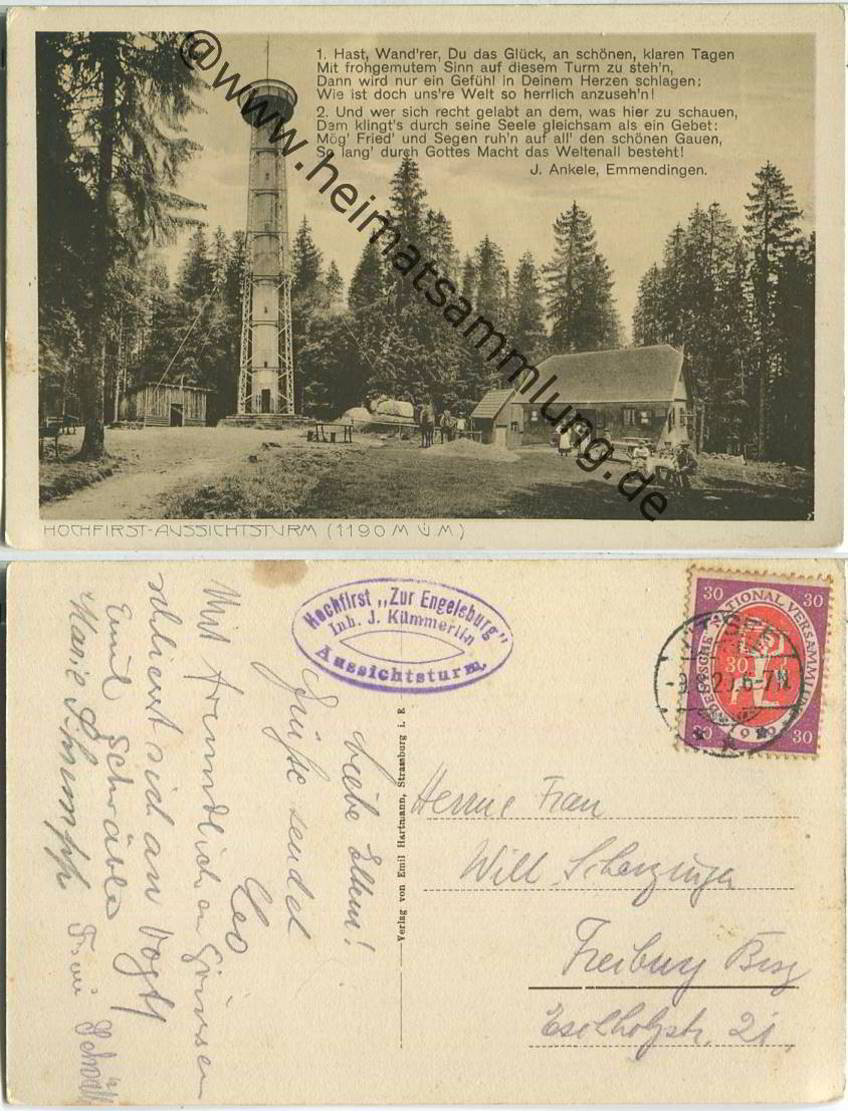 1. Hast, Wand'rer, Du das Glück, an schönen, klaren Tagen
Mit frohgemutem Sinn auf diesem Turm zu steh'n,
Dann wird nur ein Gefühl in Deinem Herzen schlagen:
Wie ist doch uns're Welt so herrlich anzuseh'n!
2. Und wer sich recht gelabt an dem, was hier zu schauen,
Dem klingt's durch seine Seele gleichsam als ein Gebet:
Mög' Fried' und Segen ruh'n auf all' den schönen Gauen,
So lang' durch Gottes Macht das Weltenall besteht!
J. Ankele, Emmendingen.
@www.heimatsammlung.de
HOCHFIRST-AUSSICHTSTURM (1190 M Ü M)
Hochfirst „Zur Engelsburg"
Inh. J. Kümmerlin
Aussichtsturm.
Liebe Eltern!
Grüße sendet
Leo
Mit freundlichen Grüssen
schliesst sich an Vogt
Emil Schwäble
Marie Schrumpf Frau
Verlag von Emil Hartmann, Strassburg i. E
30 30
DEUTSCHE NATIONALVERSAMMLUNG
1919
30
30 30
6-7N
Frau
Will. Scherzinger
Freiburg Brsg
Eschholzstr. 21